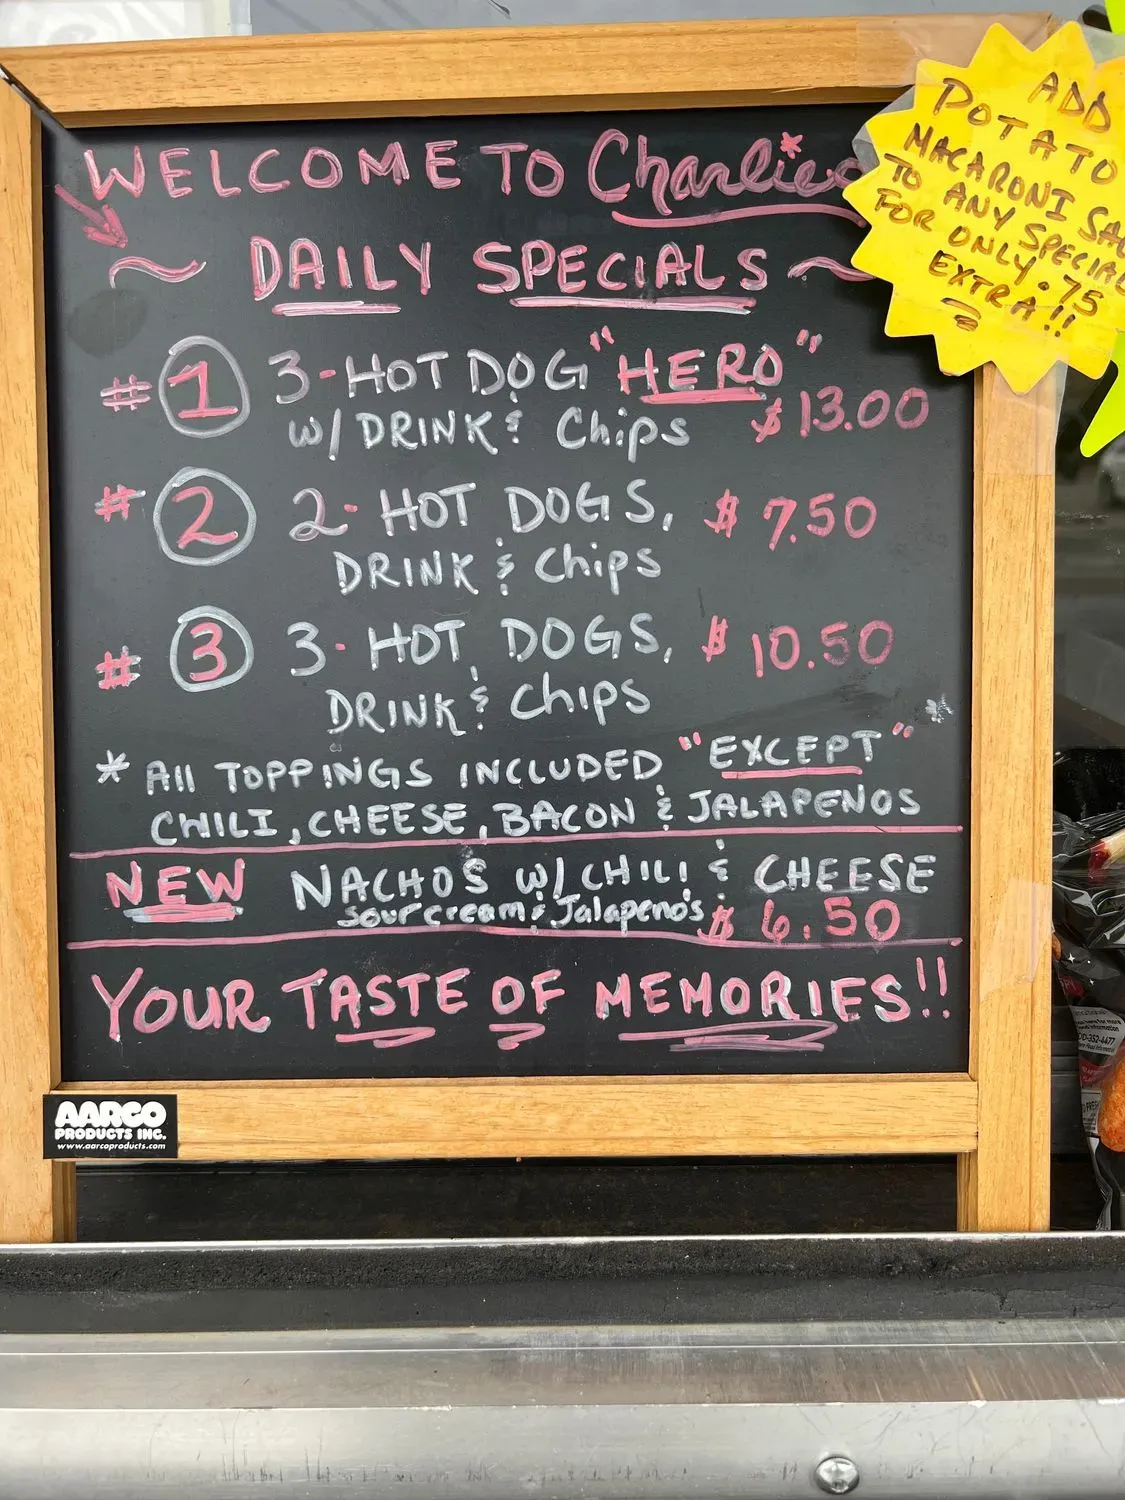 WELCOME TO Charlie's
DAILY SPECIALS
ADD
POTATO
MACARONI
TO ANY SPECIAL
FOR ONLY .75
EXTRA!!
#1 3-HOT DOG "HERO"
W/ DRINK & Chips $13.00
#2 2-HOT DOGS, $7.50
DRINK & Chips
#3 3-HOT DOGS, $10.50
DRINK & Chips
* All TOPPINGS INCLUDED "EXCEPT" *
CHILI, CHEESE, BACON & JALAPENOS
NEW NACHO'S W/ CHILI & CHEESE
Sour cream & Jalapeno's $6.50
YOUR TASTE OF MEMORIES!!
AARCO
PRODUCTS INC.
www.aarcoproducts.com